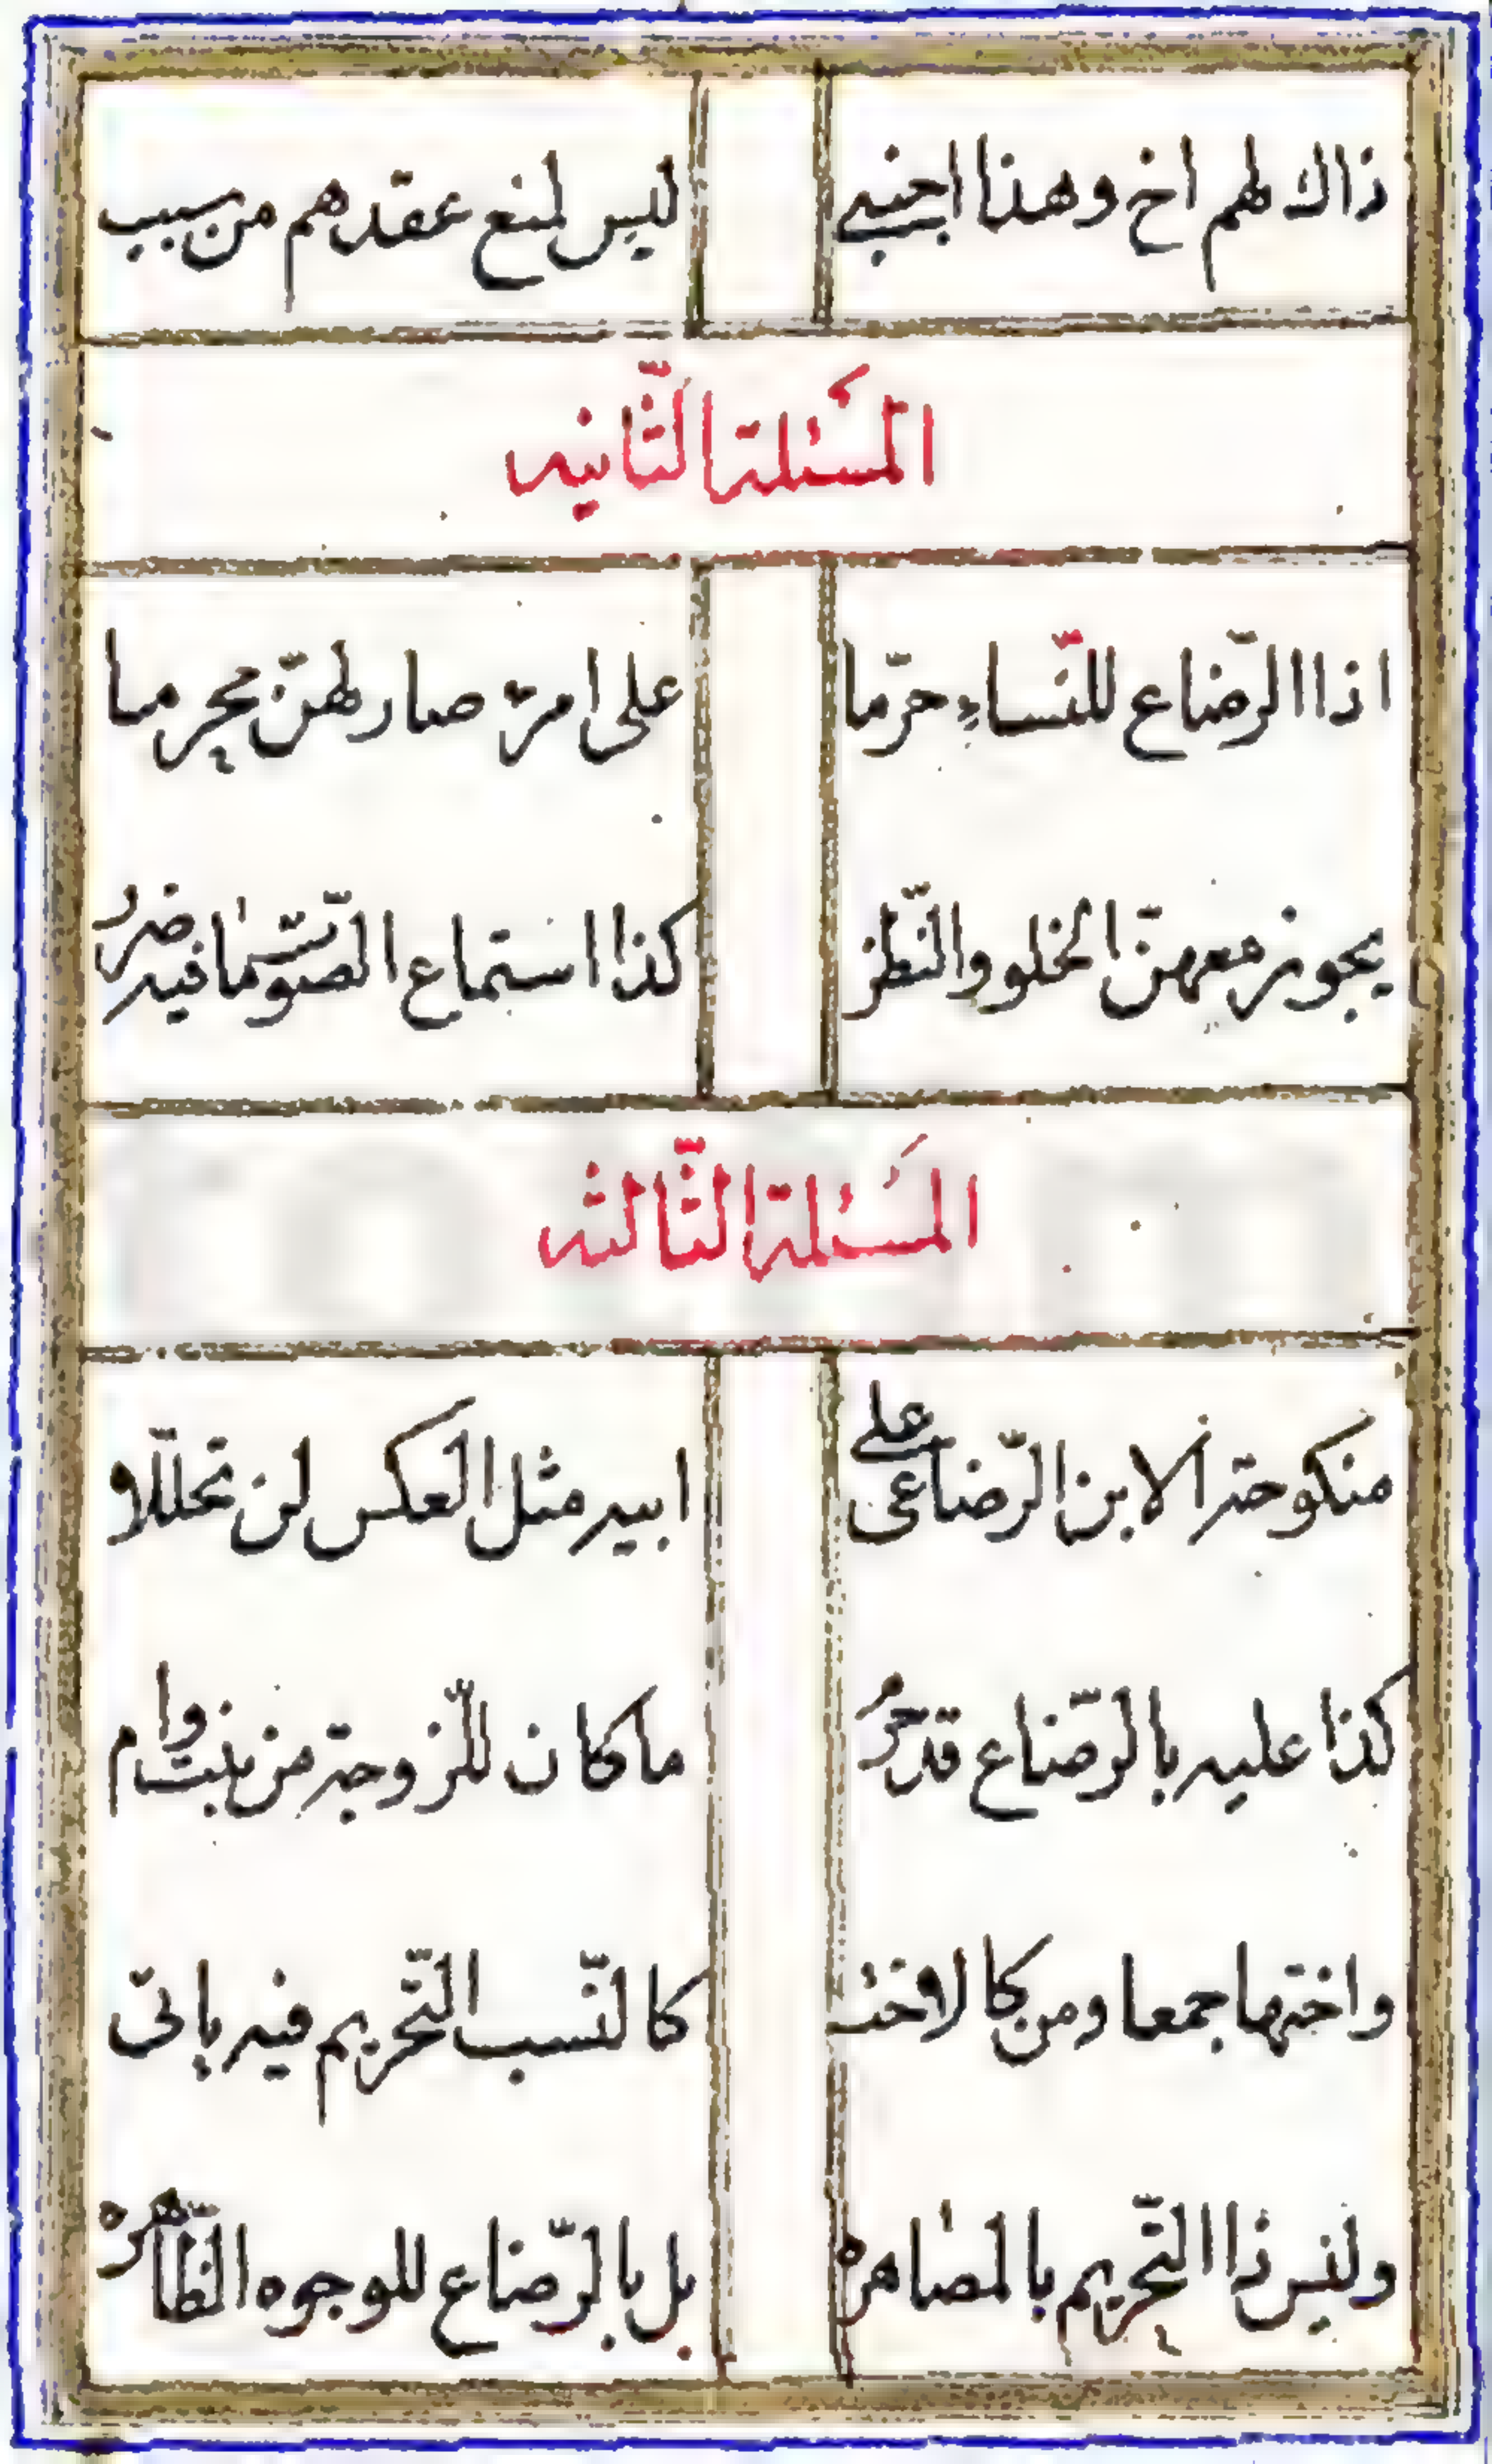 ذاك لهم اخ وهذا اجنبي ليس لمنع عقدهم من سبب
المسئلة الثّانيه
اذا الرّضاع للنّساءِ حرّما على امرء صار لهنّ محرما
يجوز معهنّ الخلو والنّظر كذا استماع الصّوت ما فيه ضرر
المسَئلة الثّالثه
منكوحة الابن الرّضاعى على ابيه مثل العكس لن تحلّلا
كذا عليه بالرّضاع قد حرُم ما كان للزّوجة من بنت وام
واختها جمعا ومن كالاخت كالنّسب التّحريم فيه ياتى
وليس ذا التّحريم بالمصاهره بل بالرّضاع للوجوه الظّاهره